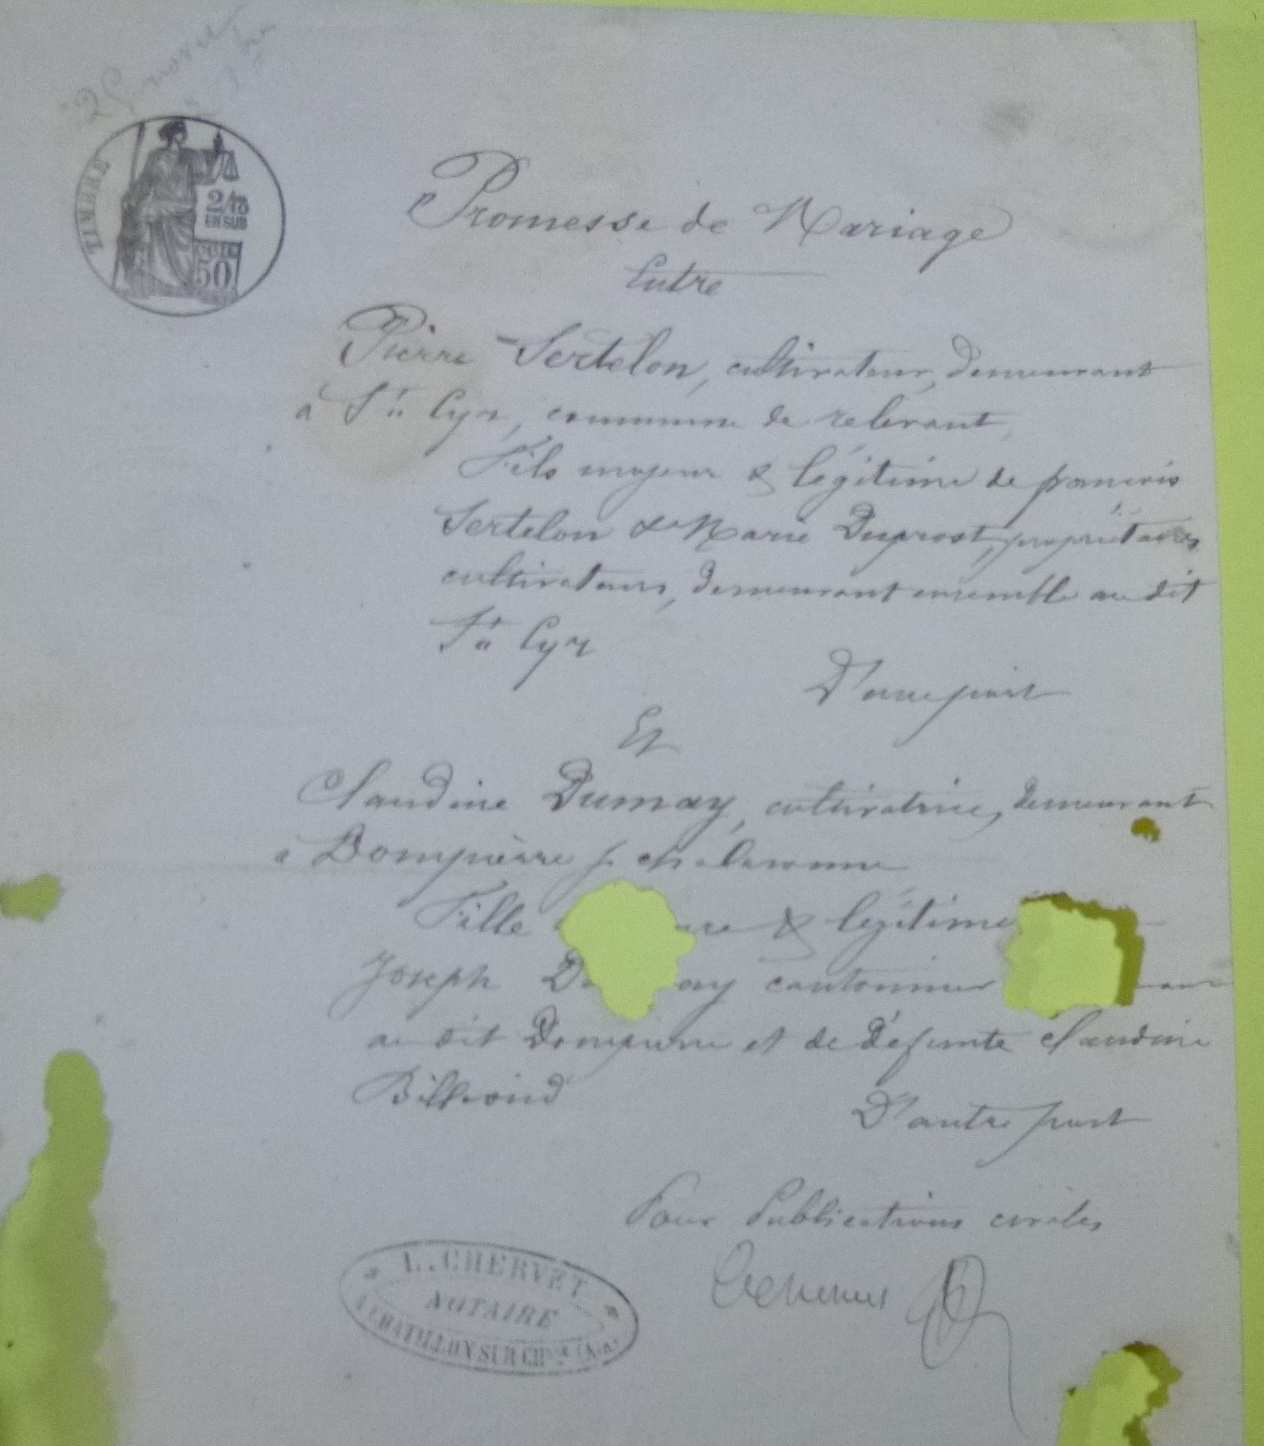 TIMBRE
2/10
EN SUS
50
Promesse de Mariage
Entre
Pierre Sertelon, cultivateur, demeurant
à St Cyr, commune de relevant,
Fils majeur & légitime de francois
Sertelon & Marie Duprost, propriétaires
cultivateurs, demeurant ensemble au dit
St Cyr
D'une part
Et
Claudine Dumay, cultivatrice, demeurant
à Dompierre s. chalaronne
Fille & légitime
Joseph cantonnier
au dit Dompierre et de défunte Claudine
D'autre part
Pour Publications civiles
L. CHERVET
NOTAIRE
A CHATILLON SUR CHNE (Ain)